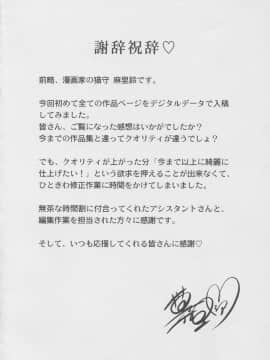 謝辞祝辞♡
前略、漫画家の猫守 麻里鈴です。
今回初めて全ての作品ページをデジタルデータで入稿
してみました。
皆さん、ご覧になった感想はいかがでしたか?
今までの作品集と違ってクオリティが違うでしょ?
でも、クオリティが上がった分「今まで以上に綺麗に
仕上げたい!」という欲求を押えることが出来なくて、
ひときわ修正作業に時間をかけてしまいました。
無茶な時間割に付合ってくれたアシスタントさんと、
編集作業を担当された方々に感謝です。
そして、いつも応援してくれる皆さんに感謝♡